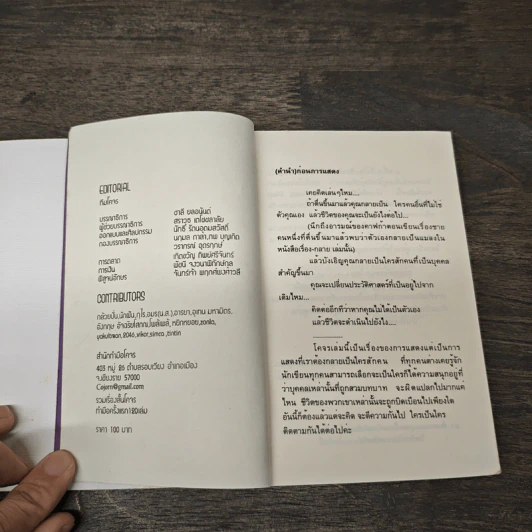 EDITORIAL
ทีมโคจร
บรรณาธิการ
ผู้ช่วยบรรณาธิการ
ออกแบบและศิลปกรรม
กองบรรณาธิการ
การตลาด
การเงิน
พิสูจน์อักษร
CONTRIBUTORS
สำนักทำมือโคจร
403 หมู่ 86 ตำบลรอบเวียง อำเภอเมือง
จ.เชียงราย 57000
Cajorn@gmail.com
รวมเรื่องสั้นโคจร
ทำมือครั้งแรก180เล่ม
ราคา 100 บาท
(คำนำ)ก่อนการแสดง
เคยคิดเล่นๆไหม....
ถ้าตื่นขึ้นมาแล้วคุณกลายเป็น ใครคนอื่นที่ไม่ใช่
ตัวคุณเอง แล้วชีวิตของคุณจะเป็นยังไงต่อไป...
(นึกถึงอารมณ์ของคาฟก้าตอนเขียนเรื่องชาย
คนหนึ่งที่ตื่นขึ้นมาแล้วพบว่าตัวเองกลายเป็นแมลงใน
หนังสือเรื่อง-กลาย เล่มนั้น)
แล้วบังเอิญคุณกลายเป็นใครสักคนที่เป็นบุคคล
สำคัญขึ้นมา
คุณจะเปลี่ยนประวัติศาสตร์ที่เป็นอยู่ไปจาก
เดิมไหม...
คิดต่ออีกที่ว่าหากคุณไม่ได้เป็นตัวเอง
แล้วชีวิตจะดำเนินไปยังไง.....
โคจรเล่มนี้เป็นเรื่องของการแสดงแต่เป็นการ
แสดงที่เราต้องกลายเป็นใครสักคน ที่ทุกคนต่างเคยรู้จัก
นักเขียนทุกคนสามารถเลือกจะเป็นใครก็ได้ความสนุกอยู่ที่
ว่าบุคคลเหล่านั้นที่ถูกสวมบทบาท จะผิดแปลกไปมากแค่
ไหน ชีวิตของพวกเขาเหล่านั้นจะถูกบิดเบือนไปเพียงใด
อันนี้ก็ต้องแล้วแต่จะคิด จะตีความกันไป ใครเป็นใคร
ติดตามกันได้ต่อไปค่ะ